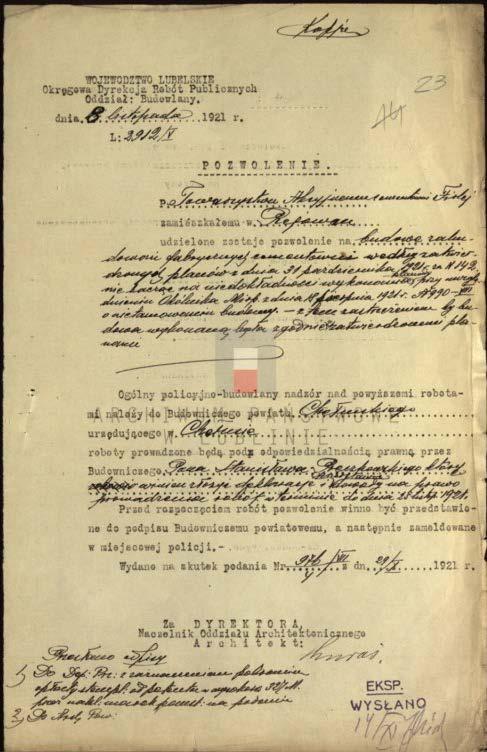 Kopja
23
WOJEWÓDZTWO LUBELSKIE
Okręgowa Dyrekcja Robót Publicznych
Oddział: Budowlany.
dnia 8 listopada 1921 r.
L: 2912/V
POZWOLENIE.
P. Towarzystwu Akcyjnemu cementowni Firlej
zamieszkałemu w Rejowcu
udzielone zostaje pozwolenie na budowę zabu-
dowań fabrycznych cementowni według zatwier-
dzonych planów z dnia 31 października 1921 r. za N 142
dnieniu Okólnika Min. z dnia sierpnia 1921 r. N 990-
budowy. – z tem zastrzeżeniem by bu-
dowa wykonaną była zgodnie z zatwierdzonemi pla-
nami
ARCHIWUM PAŃSTWOWE
W LUBLINIE
Ogólny policyjno-budowlany nadzór nad powyższemi robota-
mi należy do Budowniczego powiatu Chełmskiego
urzędującego w Chełmie
roboty prowadzone będą pod odpowiedzialnością prawną przez
Budowniczego Pana Stanisława który
winien złożyć deklarację i na prawo
prowadzenia robót w terminie do dnia 25 listop. 1921.
Przed rozpoczęciem robót pozwolenie winno być przedstawio-
ne do podpisu Budowniczemu powiatowemu, a następnie zameldowane
w miejscowej policji.-
Wydano na skutek podania Nr. 976/VII z dn. 29/X 1921 r.
Za DYREKTORA,
Naczelnik Oddziału Architektonicznego
Architekt:
1) Do z zaznaczeniem pobrania
opłaty od w wysokości
na podaniu
2) Do
EKSP.
WYSŁANO
14/XI